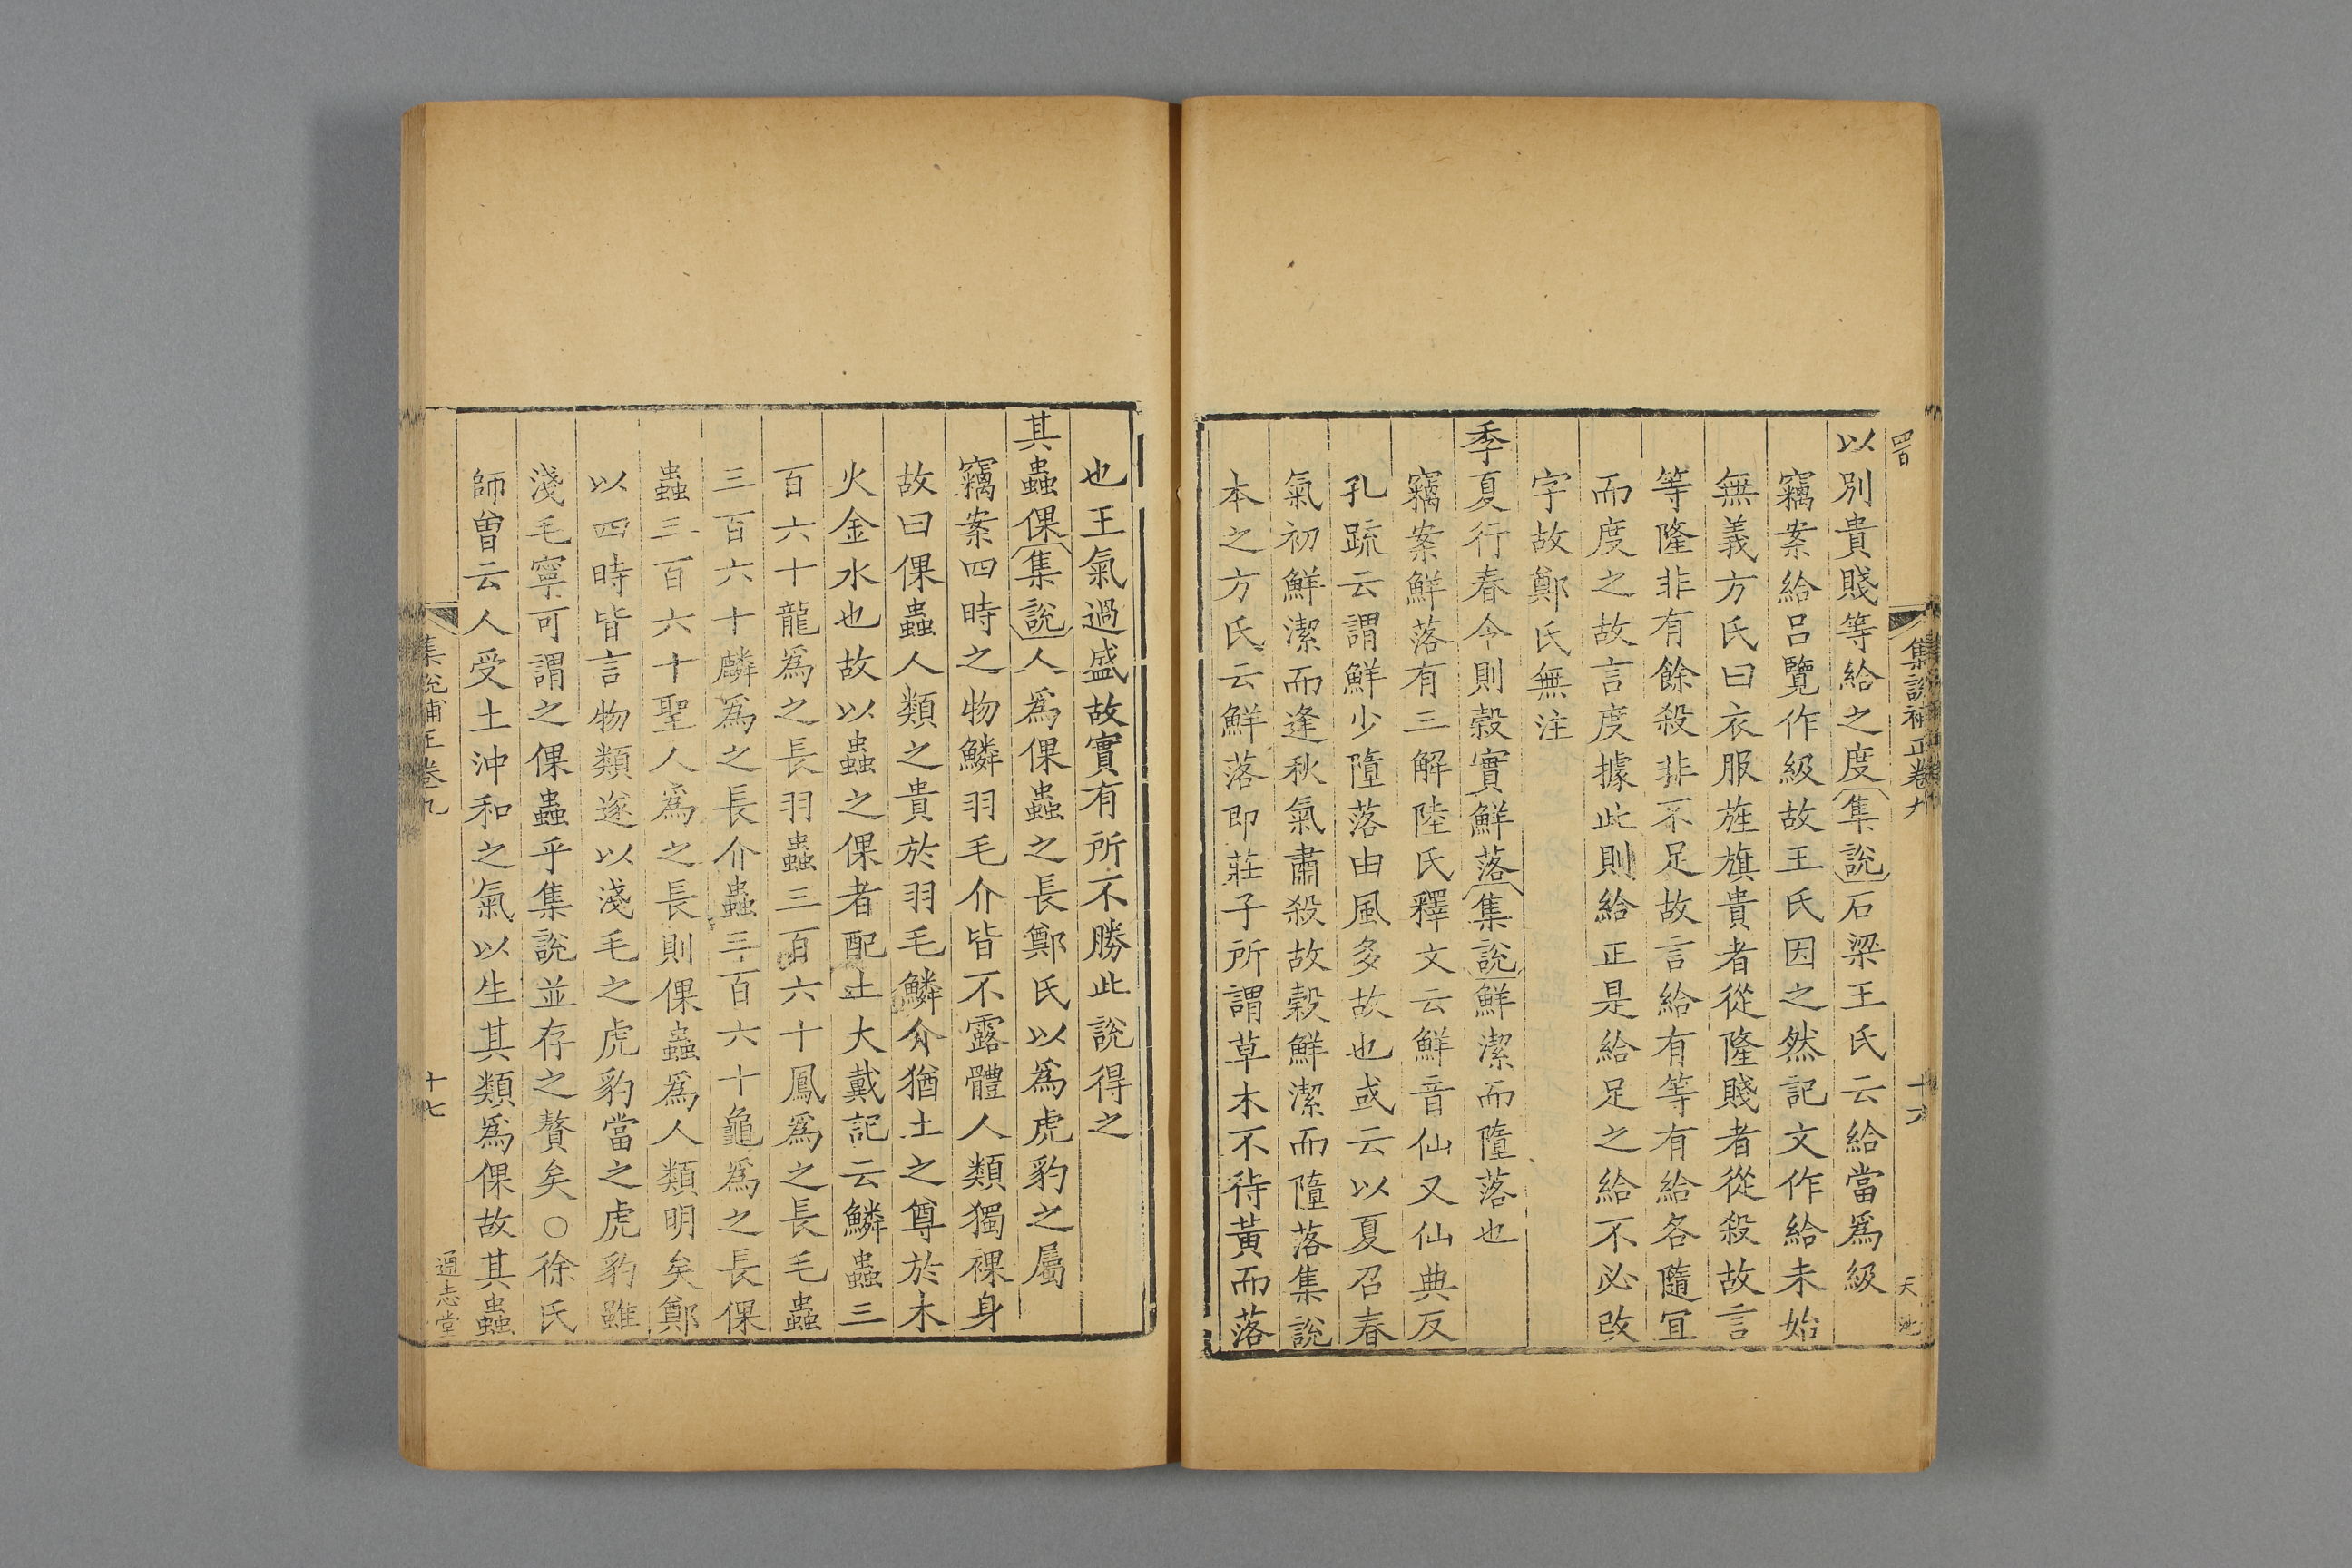 集説補正卷九
十六
以別貴賤等給之度集說石梁王氏云給當爲級
竊案給呂覽作級故王氏因之然記文作給未始
無義方氏曰衣服旌旗貴者從隆賤者從殺故言
等隆非有餘殺非不足故言給有等有給各隨宜
而度之故言度據此則給正是給足之給不必改
字故鄭氏無注
季夏行春令則穀實鮮落集說鮮潔而墮落也
竊案鮮落有三解陸氏釋文云鮮音仙又仙典反
孔疏云謂鮮少墮落由風多故也或云以夏召春
氣初鮮潔而逢秋氣肅殺故穀鮮潔而墮落集說
本之方氏云鮮落即莊子所謂草木不待黃而落
也王氣過盛故實有所不勝此說得之
其蟲倮集說人爲倮蟲之長鄭氏以爲虎豹之屬
竊案四時之物鱗羽毛介皆不露體人類獨裸身
故曰倮蟲人類之貴於羽毛鱗介猶土之尊於木
火金水也故以蟲之倮者配土大戴記云鱗蟲三
百六十龍爲之長羽蟲三百六十鳳爲之長毛蟲
三百六十麟爲之長介蟲三百六十龜爲之長倮
蟲三百六十聖人爲之長則倮蟲爲人類明矣鄭
以四時皆言物類遂以淺毛之虎豹當之虎豹雖
淺毛寧可謂之倮蟲乎集說並存之贅矣○徐氏
師曾云人受土沖和之氣以生其類爲倮故其蟲
集說補正卷九
十七
通志堂